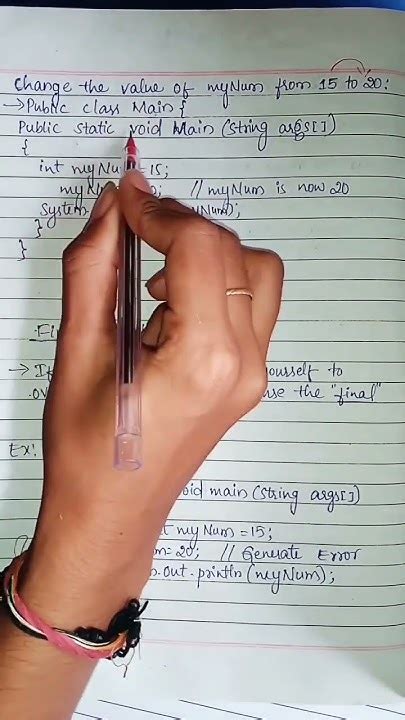 change the value of myNum from 15 to 20:
→ Public class Main {
Public static void Main (String args[])
{
int myNum = 15;
// myNum is now 20
System
}
}
→ If yourself to
use the "final"
Ex:
void main (String args[])
int myNum = 15;
= 20; // Generate Error
.out.println(myNum);